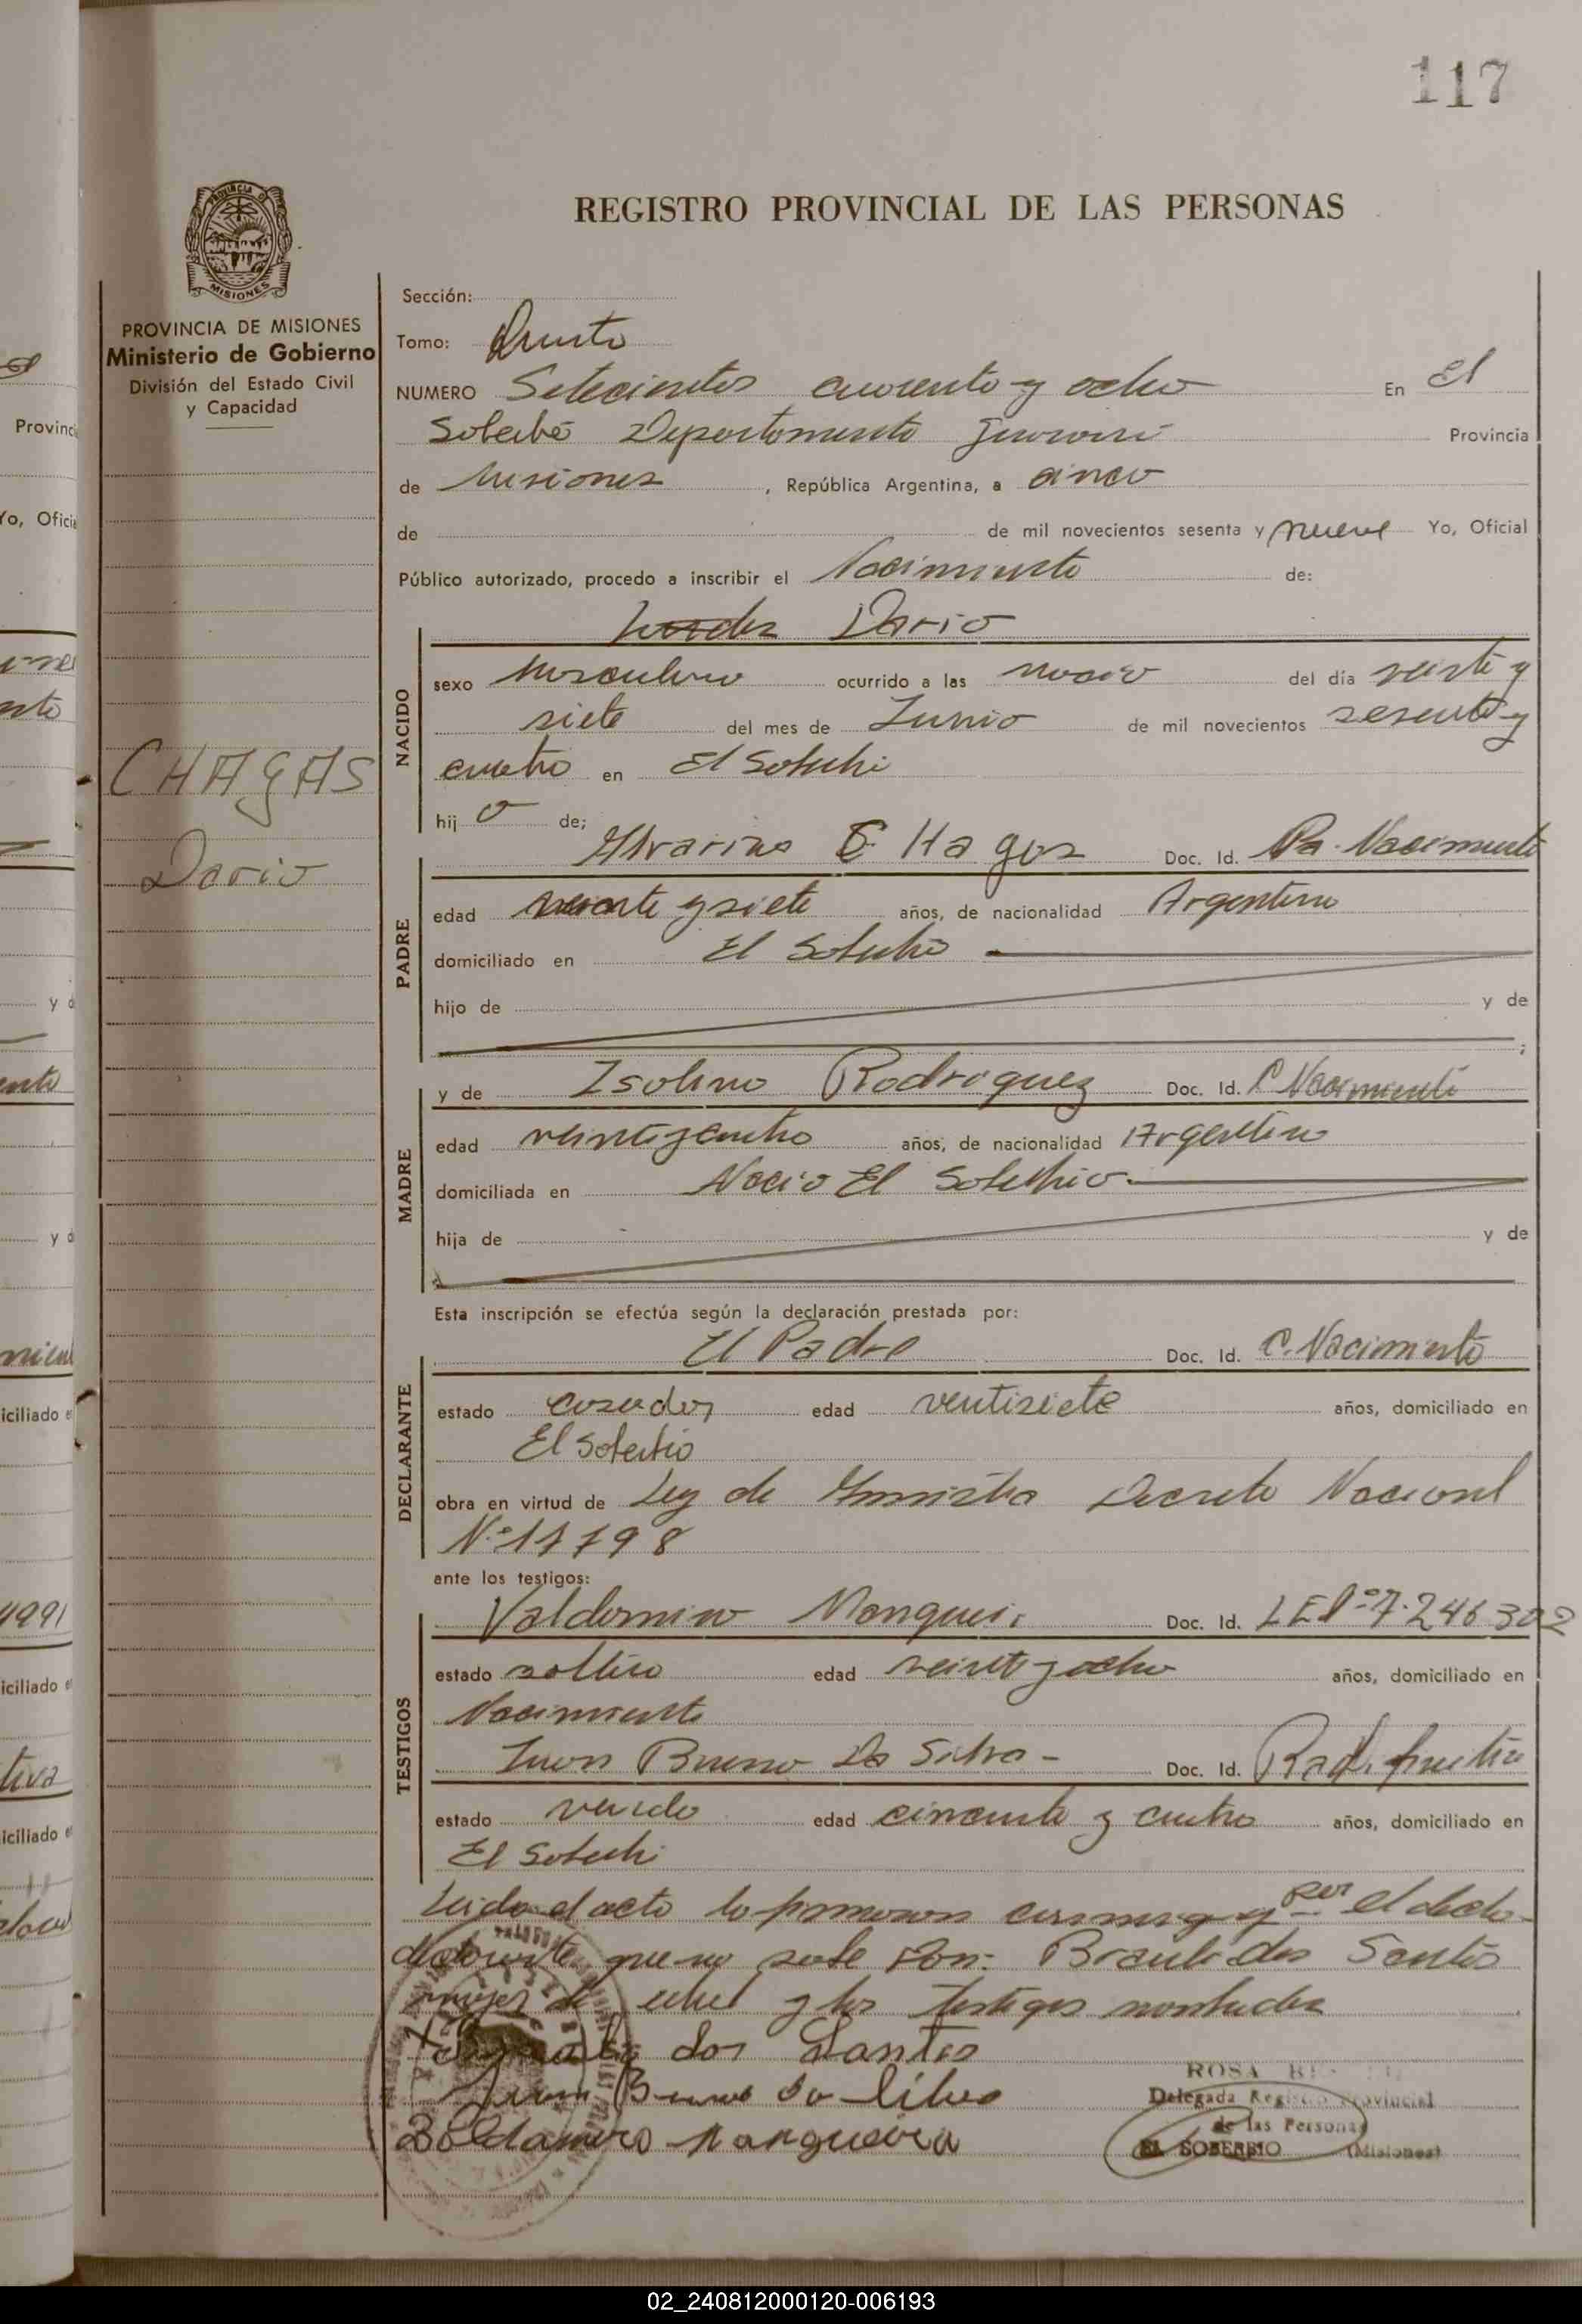 117
REGISTRO PROVINCIAL DE LAS PERSONAS
PROVINCIA DE MISIONES
Ministerio de Gobierno
División del Estado Civil
y Capacidad
CHAGAS
Dario
Sección:
Tomo: Quinto
NUMERO Setecientos cuarenta y ocho En El
Soberbio Departamento Guarani Provincia
de Misiones, República Argentina, a cinco
de de mil novecientos sesenta y nueve Yo, Oficial
Público autorizado, procedo a inscribir el Nacimiento de:
Dario
NACIDO
sexo masculino ocurrido a las del día veinte y
siete del mes de Junio de mil novecientos sesenta y
cuatro en El Soberbi
hij o de;
PADRE
Alvarino CHagas Doc. Id. Pa. Nacimiento
edad veinte y siete años, de nacionalidad Argentino
domiciliado en El Soberbio
hijo de y de
MADRE
y de Isolina Rodriguez Doc. Id. P Nacimiento
edad veintiycuatro años, de nacionalidad Argentina
domiciliada en Nacio El Soberbio
hija de y de
Esta inscripción se efectúa según la declaración prestada por:
DECLARANTE
El Padre Doc. Id. P. Nacimiento
estado casados edad ventisiete años, domiciliado en
El Soberbio
obra en virtud de Ley de Amnistia Decreto Nacional
Nº 17798
ante los testigos:
TESTIGOS
Valdomiro Manguei Doc. Id. LE Nº 7.246302
estado soltero edad veinte y ocho años, domiciliado en
Nacimiento
Juan Bueno Da Silva - Doc. Id. Rad.
estado viudo edad cincuenta y cuatro años, domiciliado en
El Soberbi
Leida el acta la firmaron conmigo y por el decla-
que no sabe Don: Braulio dos Santos
mayor de edad y los testigos nombrados
dos Santos
Juan Bueno da Silva
Boldamiro Mangueira
ROSA
Delegada Registro Provincial
de las Personas
EL SOBERBIO (Misiones)
02_240812000120-006193